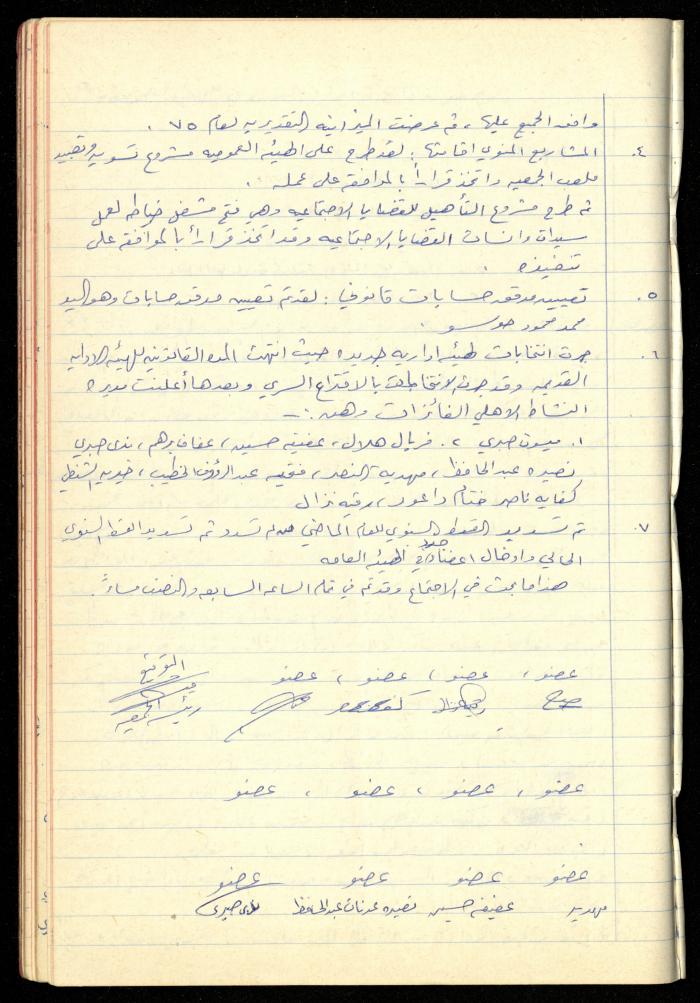 وافق الجميع عليها، ثم عرضت الميزانيه التقديريه لعام ٧٥.
٤. المشاريع المنوي اقامتها: لقد طرح على الهيئه العموميه مشروع تسويه وتعبيد
ملعب الجمعيه واتخذ قراراً بالموافقه على عمله.
ثم طرح مشروع التأهيل للقضايا الاجتماعيه وهو فتح مشغل خياطه لعمل
سيدات وانسات القضايا الاجتماعيه وقد اتخذ قراراً بالموافقه على
تنفيذه.
٥. تعيين مدقق حسابات قانوني: لقد تم تعيين مدقق حسابات وهو السيد
محمد محمود
٦. جرت انتخابات لهيئه اداريه جديده حيث انتهت المده القانونيه للهيئه الاداريه
القديمه وقد جرت الانتخابات بالاقتراع السري وبعدها أعلنت مديره
النشاط الاهلي الفائزات وهن:-
١. ميسون صبري ٢. فريال هلال، عفيفه حسين، عفاف برهم، ندى صبري
نصيره عبد الحافظ، مهدية النصر، فقيه عبد الرؤوف الخطيب، خيريه الشنطي
كفايه ناصر ختام داعور، رقيه نزال
٧. تم تسديد القسط السنوي للعام الماضي لمن لم تسدد ثم تسديد القسط السنوي
الحالي وادخال اعضاء جدد في الهيئه العامه
هذا ما بحث في الاجتماع وقد تم في تمام الساعه السابعه والنصف مساءً.
التوقيع
عضو، عضو، عضو، عضو
رئيسة الجمعيه
عضو، عضو، عضو، عضو
عضو عضو عضو عضو
مهديه عفيفه حسين نصيره عدنان عبد الحافظ ندى صبري